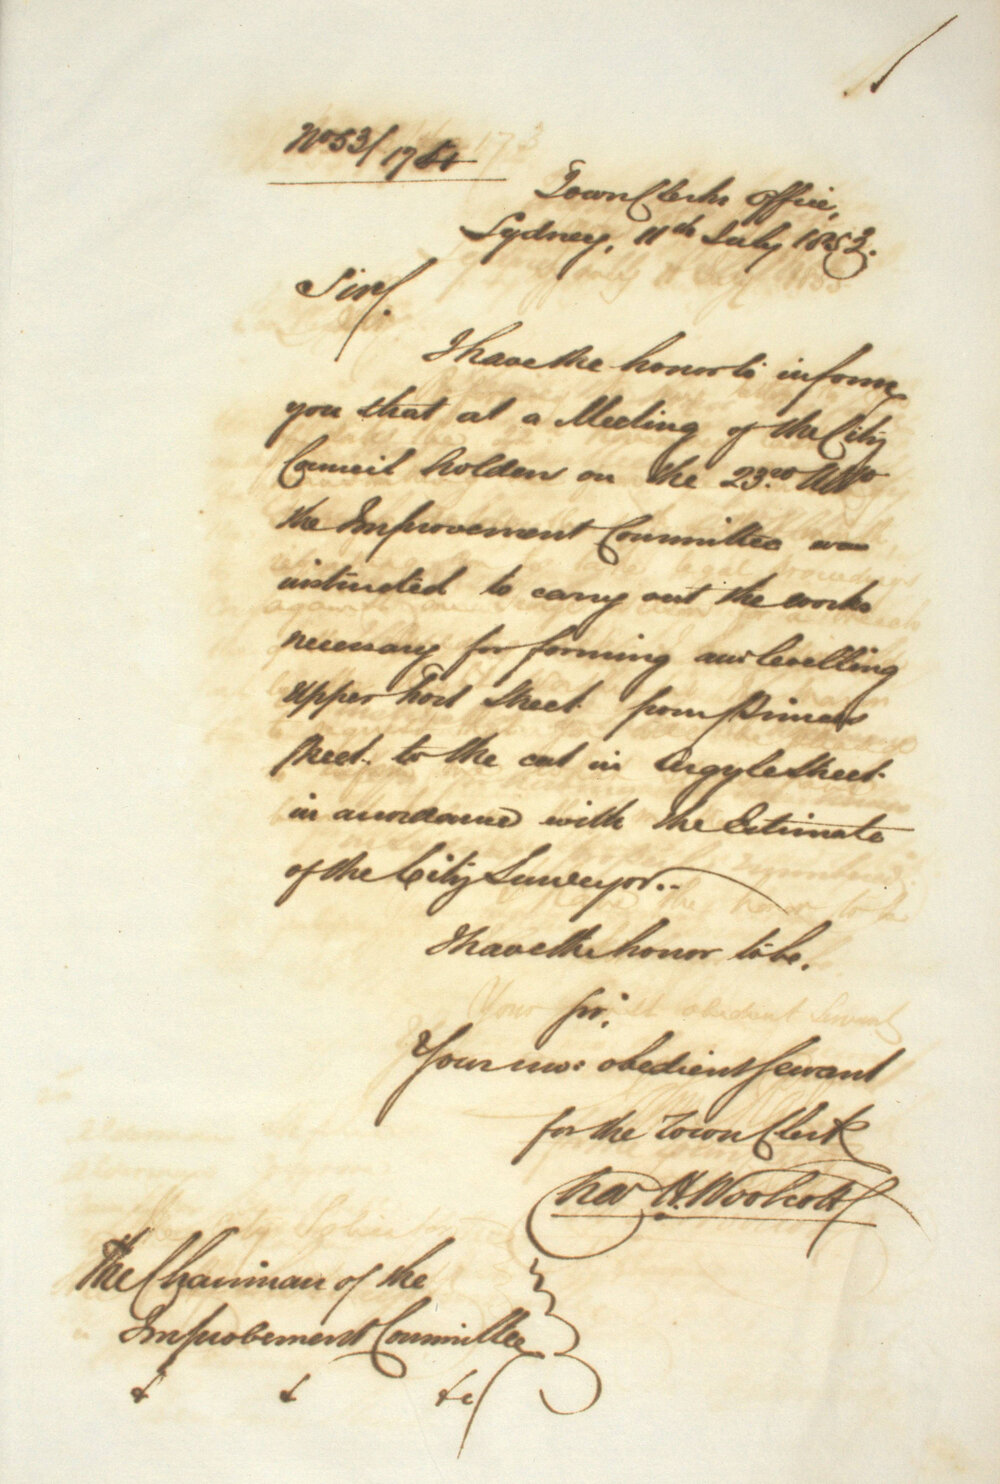 No 53/1754
Town Clerks Office,
Sydney, 11th July 1853.
Sir,
I have the honor to inform
you that at a Meeting of the City
Council holden on the 23rd Ulto
the Improvement Committee was
instructed to carry out the works
necessary for forming and levelling
Upper Fort Street from Princes
Street to the cut in Argyle Street
in accordance with the Estimate
of the City Surveyor..
I have the honor to be,
Sir,
Your mo: obedient Servant
for the Town Clerk
Chas H. Woolcott
The Chairman of the
Improvement Committee
& & &c